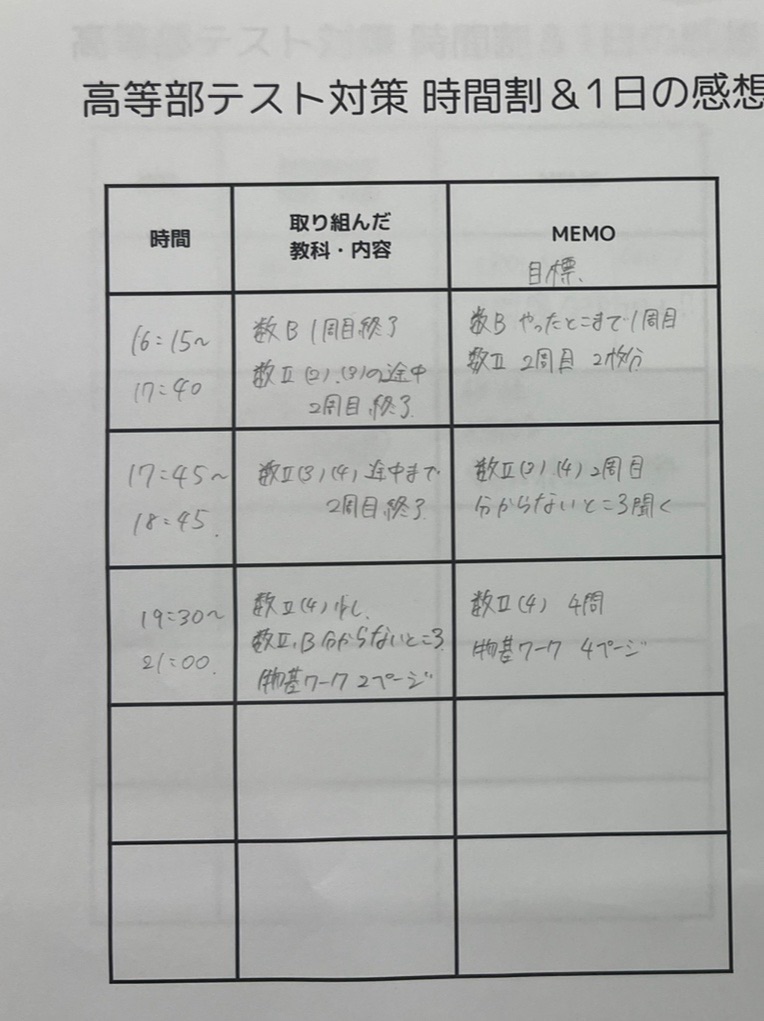 高等部テスト対策 時間割＆1日の感想
時間
取り組んだ
教科・内容
MEMO
目標、
16:15〜
17:40
数B 1周目終了
数Ⅱ(2),(3)の途中
2周目終了
数B やったとこまで1周目
数Ⅱ 2周目 2枚分
17:45〜
18:45.
数Ⅱ(3)(4)途中まで
2周目終了
数Ⅱ(3)(4)2周目
分からないところ聞く
19:30〜
21:00.
数Ⅱ(4)少し、
数Ⅱ,B分からないところ
物基ワーク 2ページ
数Ⅱ(4) 4問
物基ワーク 4ページ